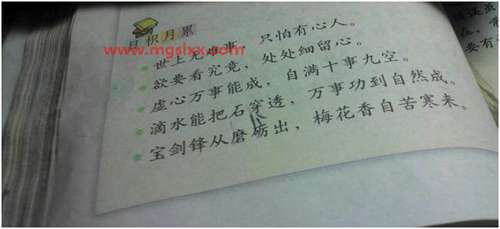 日积月累
www.mgslxx.com
世上无难事，只怕有心人。
欲要看究竟，处处细留心。
虚心万事能成，自满十事九空。
滴水能把石穿透，万事功到自然成。
宝剑锋从磨砺出，梅花香自苦寒来。